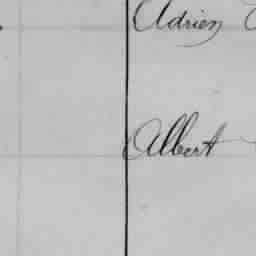 Adrien
Albert